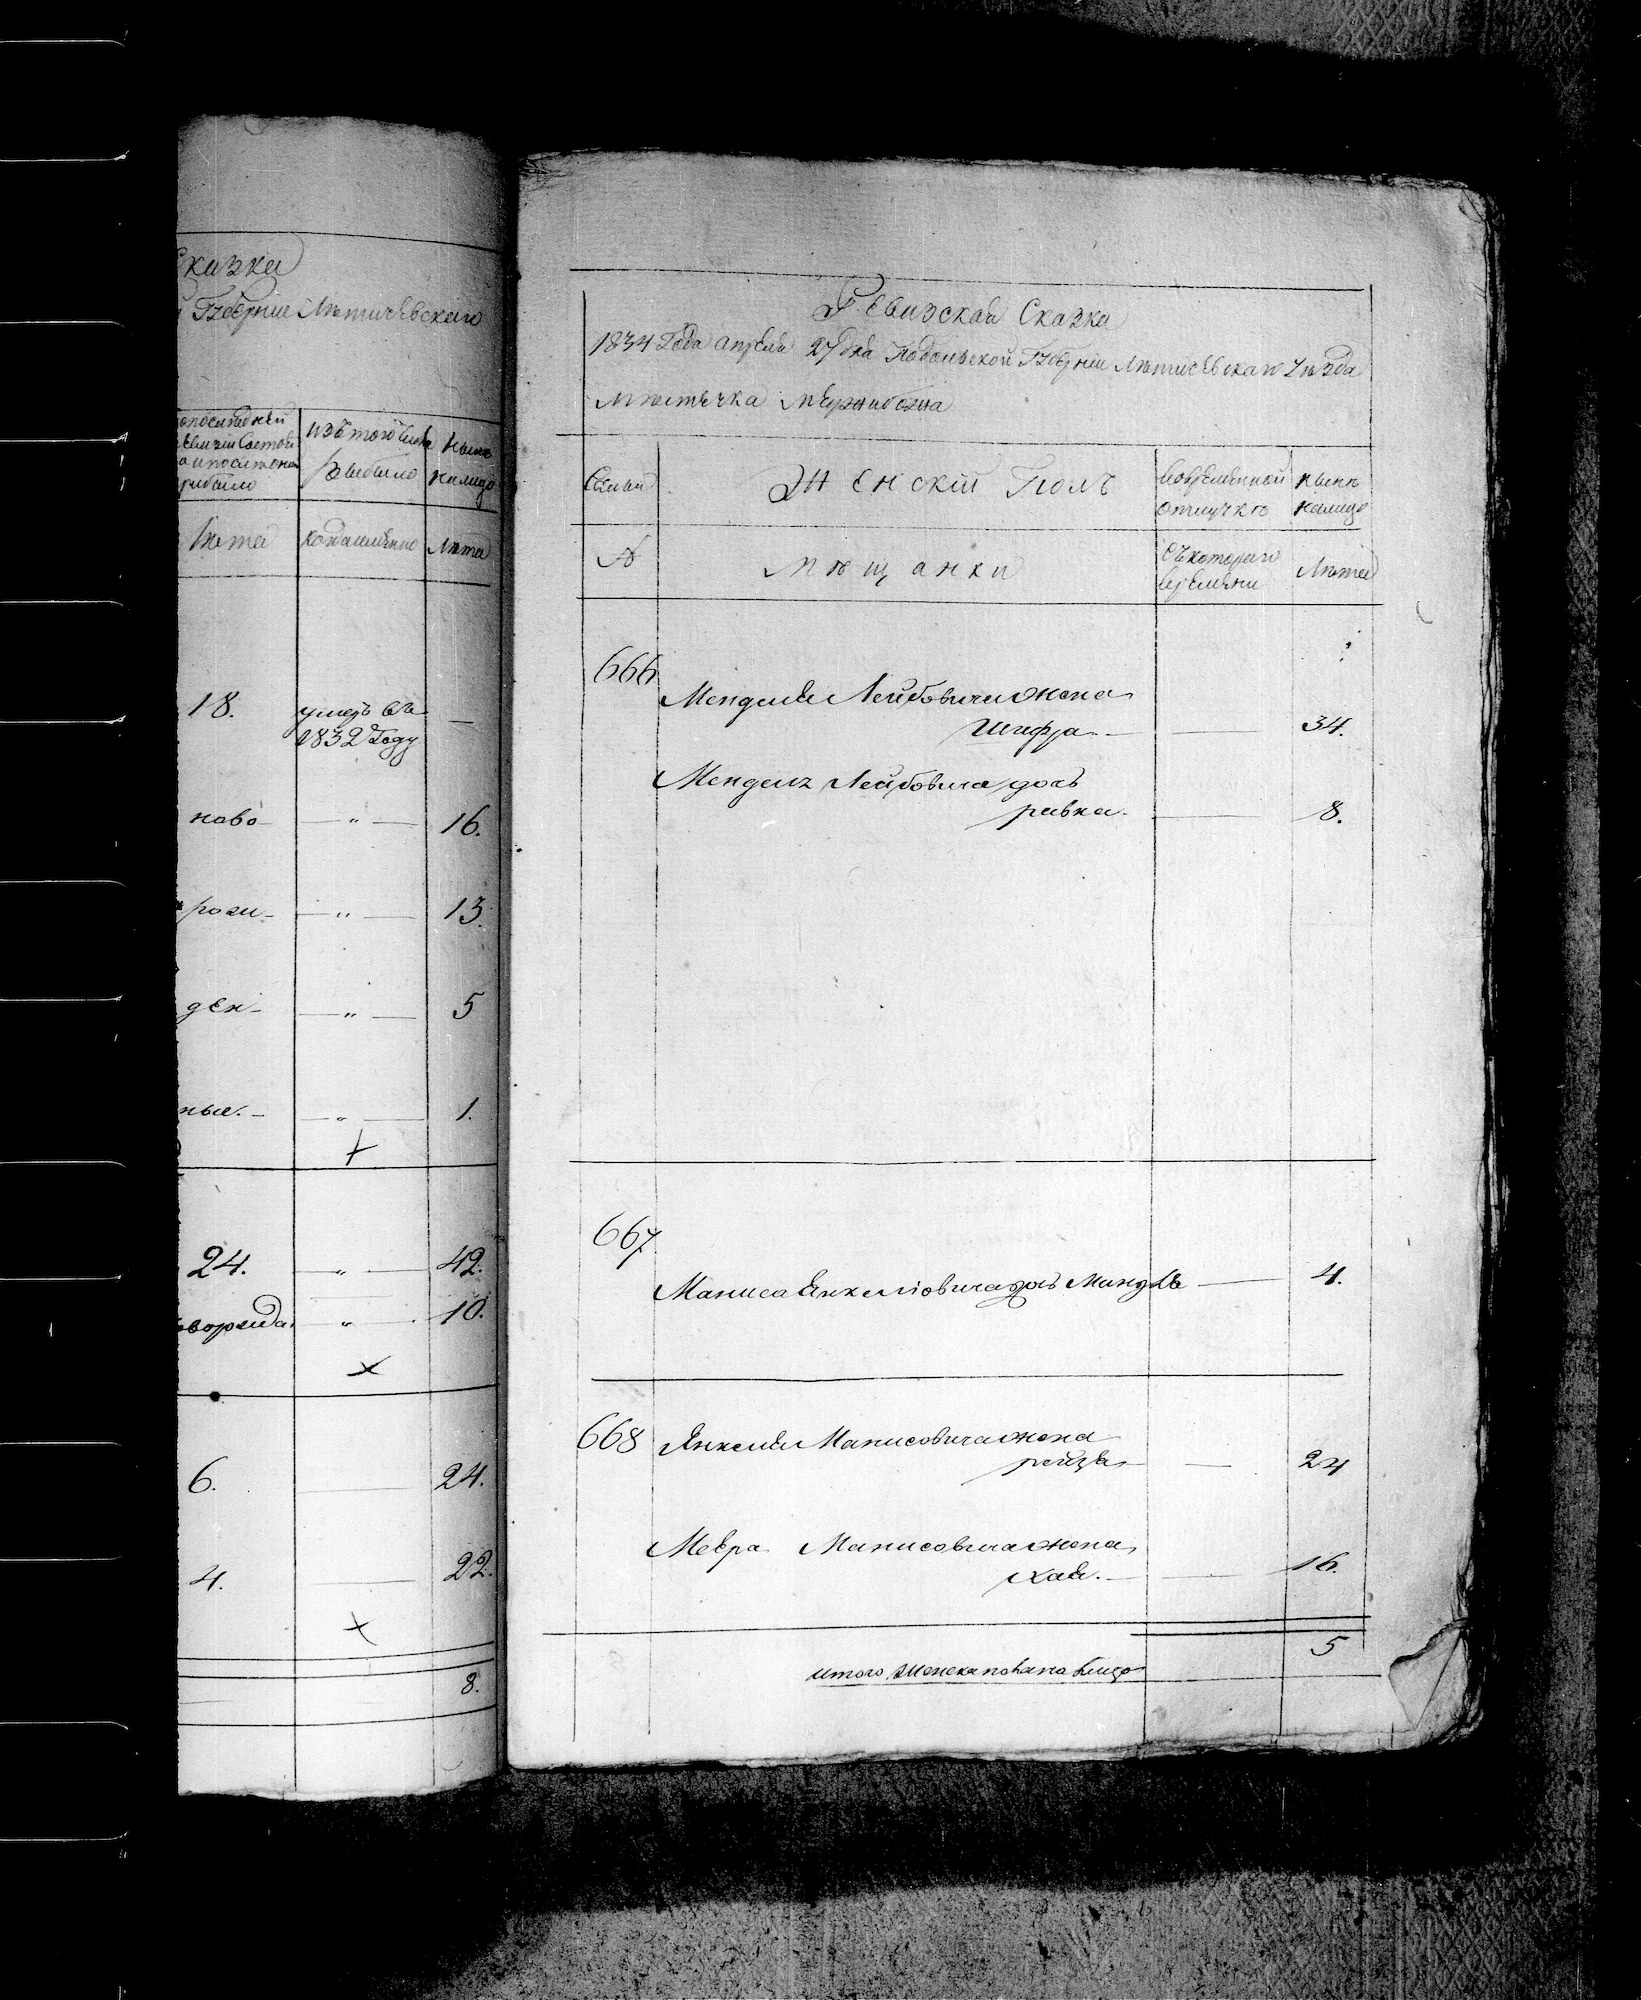 Сказка
Губернии Летичевскаго
изътого числа
ныне
выбыло
налицо
Лета
когдаименно
Лета
18.
умеръ въ
1832 Году
—
ново
— " —
16.
рож-
— " —
13.
ден-
— " —
5
ные.-
— " —
1.
24.
— " —
42.
— " —
10.
6.
24.
4.
22.
8.
Ревизская Сказка
1834 Года апреля 27 дня Подольской Губернии Летичевскаго Уезда
местечка Меджибожа
Семьи
Женскій Полъ
вовременной
отлучке
ныне
налицо
№
мещанки
съкотораго
времени
Лета
666
Менделя Лейбовича жена
Шифра
—
34.
Менделя Лейбовича дочь
ривка.
—
8.
667
Маниса Янкелiовича дочь Миндля
—
4.
668
Янкеля Манисовича жена
рейзя
—
24
Меера Манисовича жена
хая.
—
16.
итого женска пола налицо
5